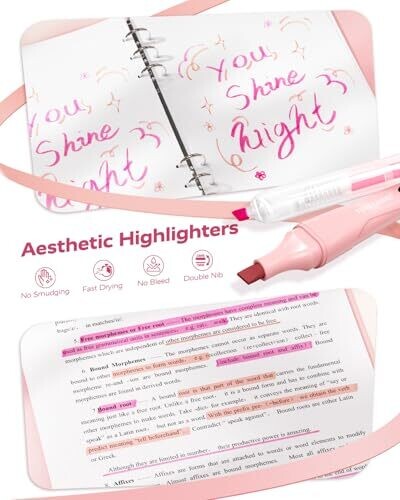 You
Shine
Night
You
Shine
Night
Aesthetic Highlighters
No Smudging
Fast Drying
No Bleed
Double Nib
5. Free morphemes or Free root —— The morphemes have complete meaning and can be
used as free grammatical units in sentences, e.g. cat, walk. They are identical with root words.
morphemes which are independent of other morphemes are considered to be free.
6. Bound Morphemes —— The morphemes cannot occur as separate words. They are
bound to other morphemes to form words, e.g. recollection (re+collect+ion) collect – free
morpheme re-and -ion are bound morphemes. (include bound root and affix) Bound
morphemes are found in derived words.
7. Bound root —— A bound root is that part of the word that carries the fundamental
meaning just like a free root. Unlike a free root, it is a bound form and has to combine with
other morphemes to make words. Take -dict- for example, it conveys the meaning of "say or
speak" as a Latin root, but not as a word. With the prefix pre- (=before) we obtain the verb
predict meaning "tell beforehand". Contradict "speak against". Bound roots are either Latin
or Greek.
Although they are limited in number, their productive power is amazing.
8. Affixes —— Affixes are forms that are attached to words or word elements to modify
Almost all affixes are bound morphemes.